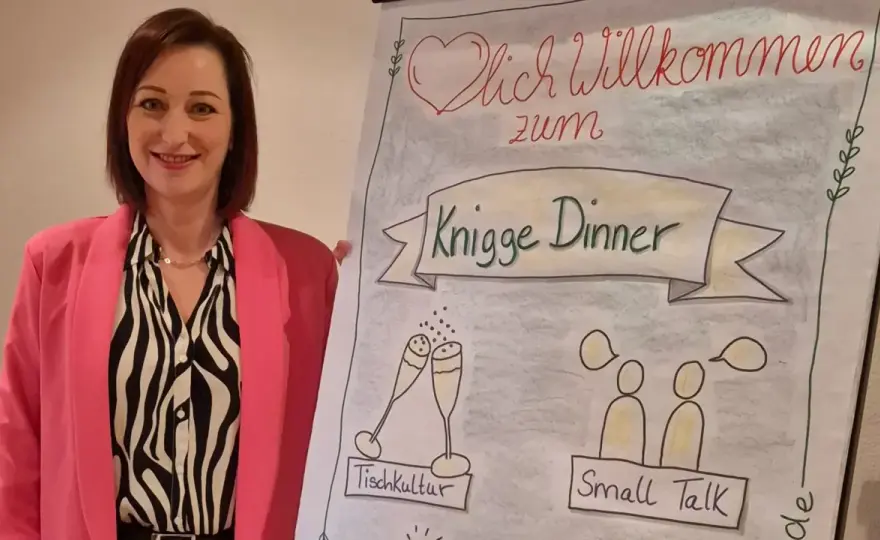 lich Willkommen
zum
Knigge Dinner
Tischkultur
Small Talk
de